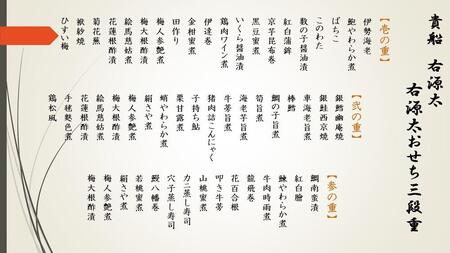 貴船 右源太
右源太おせち三段重
【壱の重】
伊勢海老
鮑やわらか煮
ばちこ
このわた
数の子醤油漬
紅白蒲鉾
京芋昆布巻
黒豆蜜煮
いくら醤油漬
鶏肉ワイン煮
伊達巻
金柑蜜煮
田作り
梅人参艶煮
梅大根酢漬
絵馬慈姑煮
花蓮根酢漬
菊花蕪
袱紗焼
ひすい梅
【弐の重】
銀鱈幽庵焼
銀鮭西京焼
車海老旨煮
棒鱈
鯛の子旨煮
筍旨煮
海老芋旨煮
牛蒡旨煮
猪肉詰こんにゃく
子持ち鮎
栗甘露煮
蛸やわらか煮
絹さや煮
梅人参艶煮
梅大根酢漬
絵馬慈姑煮
花蓮根酢漬
手毬麩色煮
鶏松風
【参の重】
鯛南蛮漬
紅白膾
鰊やわらか煮
牛肉時雨煮
龍飛巻
花百合根
叩き牛蒡
山桃蜜煮
カニ蒸し寿司
穴子蒸し寿司
鰻八幡巻
若桃蜜煮
絹さや煮
梅人参艶煮
梅大根酢漬